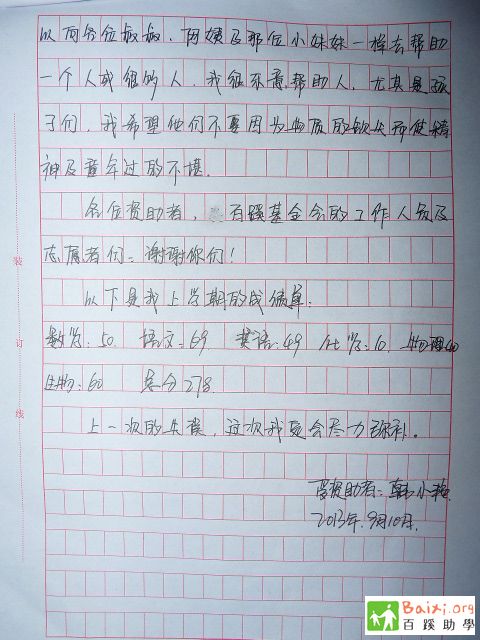 以后各位叔叔、阿姨及那位小妹妹一样去帮助
一个人或很多人，我很乐意帮助人，尤其是孩
子们，我希望他们不要因为物质的缺失而使精
神及童年过的不堪.
各位资助者，百蹊基金会的工作人员及
志愿者们：谢谢你们！
以下是我上学期的成绩单：
数学：50. 语文：69 英语：49 化学：10. 物理40
生物：60 总分278.
上一次的失误，这次我定会尽力弥补。
受资助者：韩小艳
2013年.9月10日.
装
订
线
Baixi.org
百蹊助學